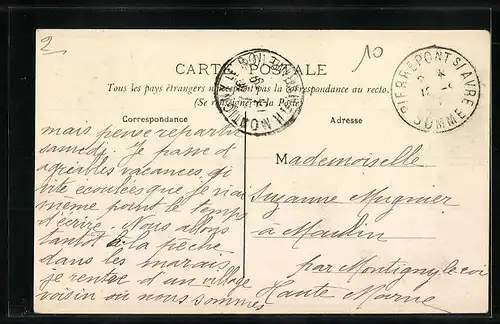 2
10
CARTE POSTALE
Tous les pays étrangers n'acceptent pas la correspondance au recto.
(Se renseigner à la Poste)
PIERREPONT S/AVRE
SOMME
MONTIGNY LE ROI
Hte MARNE
Correspondance
Adresse
mais pense repartir
samedi. Je passe d'
agréables vacances, si
vite écoulées que je n'ai
même point le temps
d'écrire. Nous allons
tantôt à la pêche
dans les marais
je rentre d'un village
voisin où nous sommes
Mademoiselle
Suzanne Mugnier
à Maulin
par Montigny le roi
Haute Marne